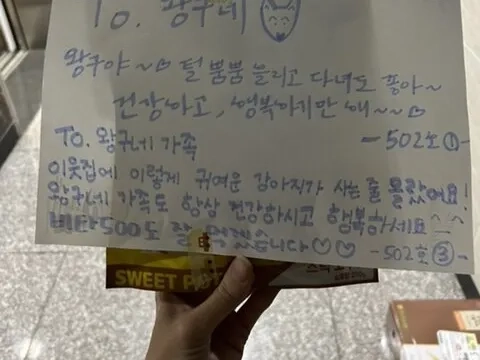 To. 왕구네
왕구야~♡ 털 뿜뿜 늘리고 다녀도 좋아~
건강하고, 행복하기만 해~~♡
To. 왕구네 가족 -502호①-
이웃집에 이렇게 귀여운 강아지가 사는 줄 몰랐어요!
왕구네 가족도 항상 건강하시고 행복하세요^^
비타500도 잘 습니다♡♡ -502호③-
SWEET